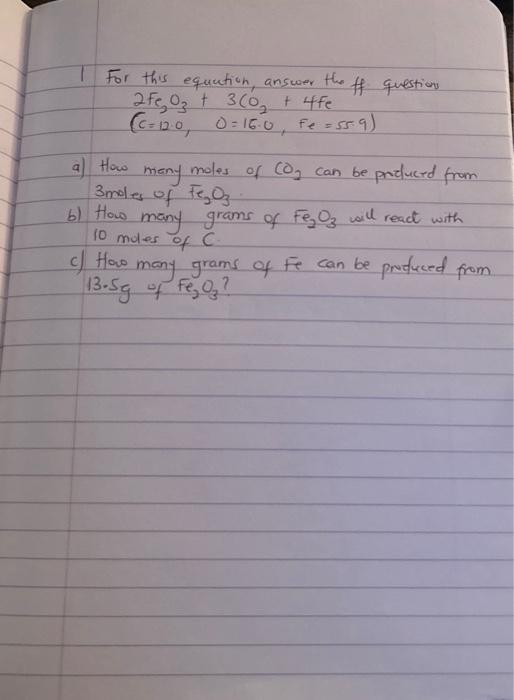 1 For this equation, answer the ff questions
2Fe₂O₃ + 3CO₂ + 4Fe
(C=12.0, O=16.0, Fe=55.9)
a) How many moles of CO₂ can be produced from
3moles of Fe₂O₃.
b) How many grams of Fe₂O₃ will react with
10 moles of C.
c) How many grams of Fe can be produced from
13.5g of Fe₂O₃?